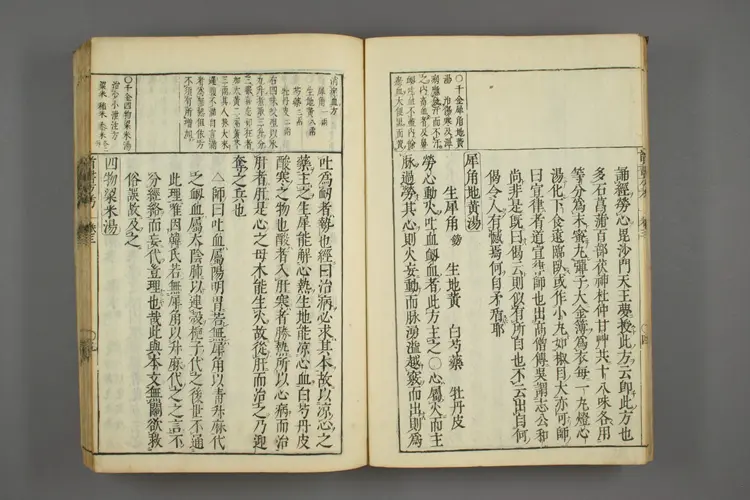 誦經勞心毘沙門天王夢授此方云卽此方也
多石菖蒲百部茯神杜仲甘艸共十八味各用
等分爲末蜜丸彈子大金簿爲衣每一丸燈心
湯化下食遠臨臥或作小丸如椒目大亦可師
曰宣律者道宣律師也出高僧傳吳鶴志公和
尚非是旣曰偈云則似有所自也不云出自何
偈令人有憾焉何自矛盾耶
犀角地黃湯
生犀角 鎊 生地黃 白芍藥 牡丹皮
勞心動火吐血衂血者此方主之○心屬火而主
脉過勞其心則火妄動而脉湧溢越竅而出則爲
○千金犀角地黃
湯治傷寒及溫
病應發汗而不汗
之內蓄血者及鼻
衂吐血不盡內餘
瘀血大便黑面黃
消瘀血方
犀角一兩
生地黃八兩
芍藥三兩
牡丹皮二兩
右四味㕮咀以水
九升煮取三升分
三服喜忘如狂者
加大黃二兩黃芩
三兩其人脉大來
遲腹不滿自言滿
者爲無熱但依方
不須有所增加
吐爲衂者勢也經曰治病必求其本故以凉心之
藥主之生犀能解心熱生地能凉心血白芍丹皮
酸寒之物也酸者入肝寒者勝熱所以心病而治
肝者肝是心之母木能生火故從肝而治之乃迎
奪之兵也
△師曰吐血屬陽明胃若無犀角以青升麻代
之衂血屬太陰肺以連殼梔子代之後世不通
此理唯因韓氏若無犀角以升麻代之之言不
分經絡而妄代豈理也哉此與本文無關欲救
俗誤故及之
四物粱米湯
○千金四物粱米湯
治小兒泄注方
粱米 稻米 黍米各